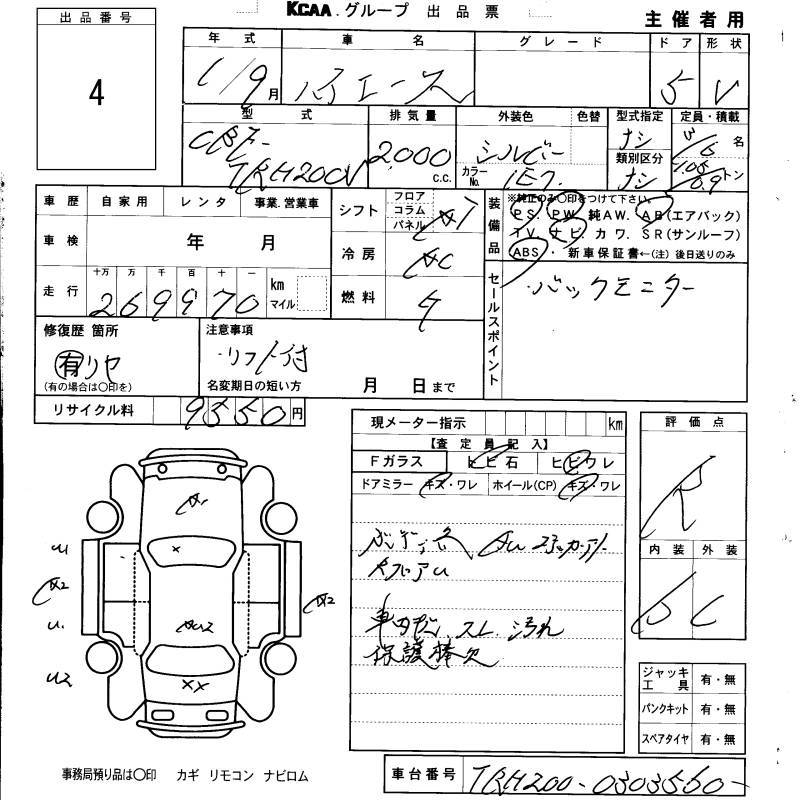 KCAA グループ 出品票
主催者用
出品番号
4
年式 車名 グレード ドア 形状
1/9月 ハイエース 5 V
型式 排気量 外装色 色替 型式指定 定員・積載
CBF-
TRH200V
2000 c.c.
シルバー
カラーNo. 1E7
ナシ
類別区分
ナシ
3/6 名
トン
車歴 自家用 レンタ 事業.営業車
車検 年 月
走行 十万 万 千 百 十 一
269970 km マイル
シフト フロア コラム パネル AT
冷房 AC
燃料 ガ
装備品
※純正のみ〇印をつけて下さい。
PS. PW. 純AW. AB(エアバック)
TV. ナビ. カワ. SR(サンルーフ)
ABS ・ 新車保証書←(注) 後日送りのみ
セールスポイント
バックモニター
修復歴 箇所
有 リヤ
(有の場合は〇印を)
注意事項
・リフト付
名変期日の短い方 月 日まで
リサイクル料 9550円
現メーター指示 km
【査定員記入】
Fガラス トビ石 ヒビワレ
ドアミラー キズ・ワレ ホイール(CP) キズ・ワレ
評価点
R
内装 外装
D C
車内 スレ 汚れ
保護棒欠
ジャッキ工具 有・無
パンクキット 有・無
スペアタイヤ 有・無
事務局預り品は〇印 カギ リモコン ナビロム
車台番号 TRH200-0303550-